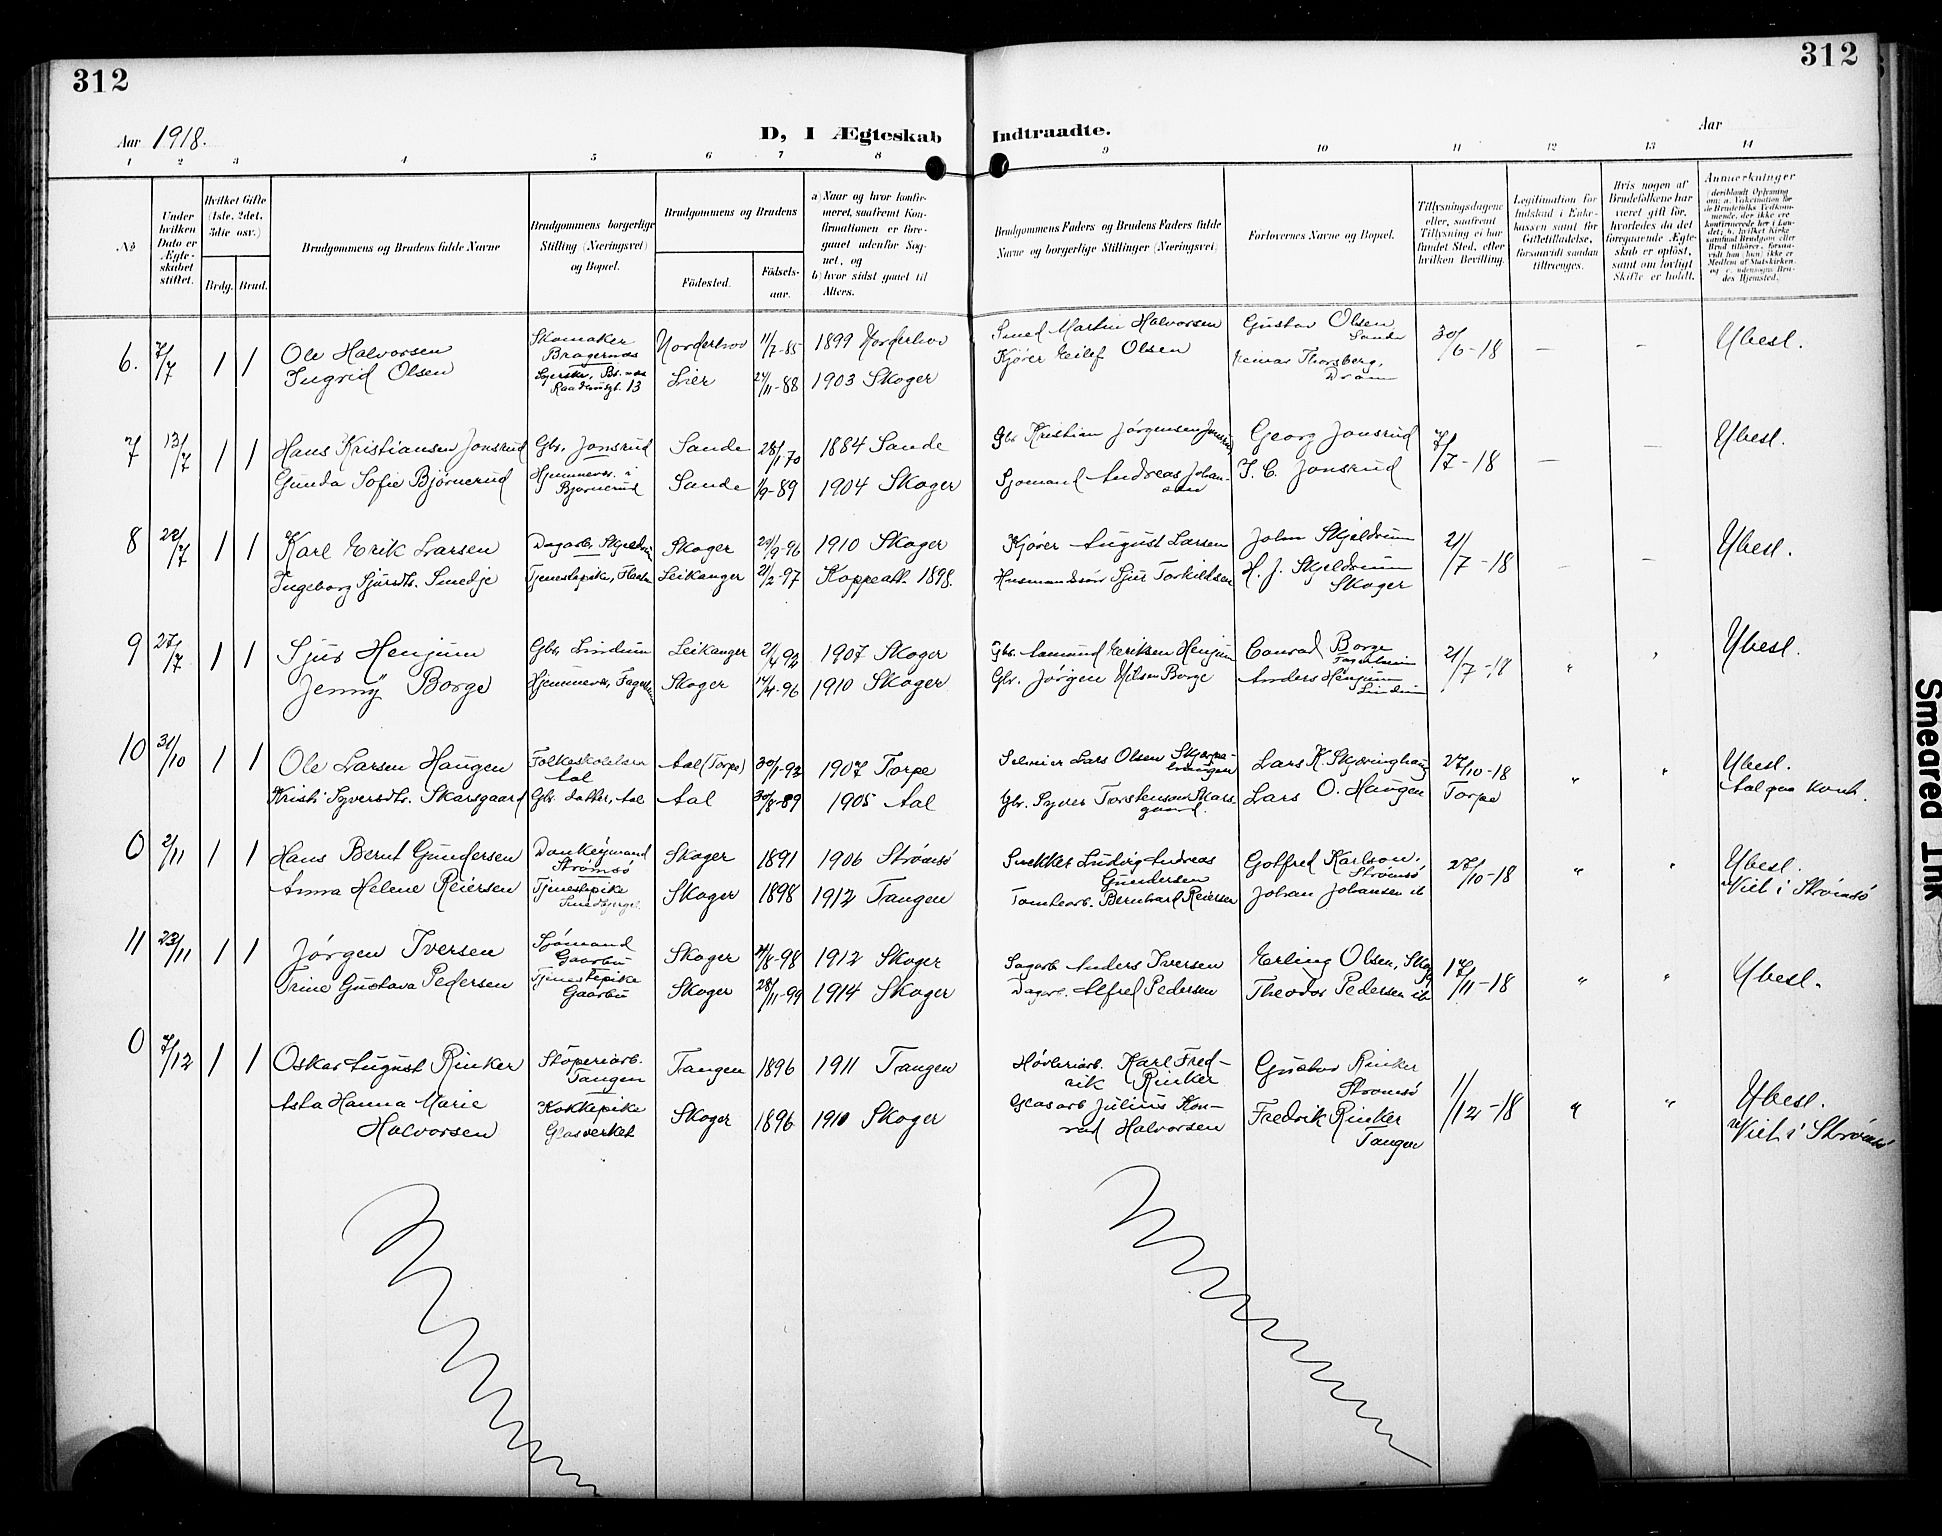 312
312
Aar 1918.
D, I Ægteskab Indtraadte.
Aar
1 2 3 4 5 6 7 8 9 10 11 12 13 14
No
Under hvilken Dato er Ægteskabet stiftet.
Hvilket Gifte (1ste, 2det, 3die osv.)
Brdg. Brud.
Brudgommens og Brudens fulde Navne
Brudgommens borgerlige Stilling (Næringsvei) og Bopæl.
Brudgommens og Brudens
Födested. Födselsaar.
a) Naar og hvor konfirmeret, saafremt Konfirmationen er foregaaet udenfor Sognet, og
b) hvor sidst gaaet til Alters.
Brudgommens Faders og Brudens Faders fulde Navne og borgerlige Stillinger (Næringsvei)
Forlovernes Navne og Bopæl.
Tillysningsdagene eller, saafremt Tillysning ei har fundet Sted, efter hvilken Bevilling.
Legitimation for Indskud i Enkekassen samt for Giftetilladelse, forsaavidt saadan tiltrænges.
Hvis nogen af Brudefolkene har været gift før, hvorledes da det foregaaende Ægteskab er opløst, samt om lovligt Skifte er holdt.
Anmærkninger
6. 7/7 1 1 Ole Halvorsen Skomaker Bragernæs Norderhov 11/7-85 1899 Norderhov Smed Martin Halvorsen Gustav Olsen Sande 30/6-18 — — Ubesl.
Ingrid Olsen Lier 24/11-88 1903 Skoger Kjører Eilef Olsen Thorsberg, Dram
7 13/7 1 1 Hans Kristiansen Jonsrud Gbr. Jonsrud Sande 28/1 70 1884 Sande Gbr. Kristian Jørgensen Jonsrud Georg Jonsrud 7/7-18 — — Ubesl.
Gunda Sofie Bjørnerud Hjemmevær. i Bjørnerud Sande 1/9-89 1904 Skoger Sjømand Andreas Johansen J. C. Jonsrud
8 28/7 1 1 Karl Erik Larsen Dagarb. Skjeldrum Skoger 29/9-96 1910 Skoger Kjører August Larsen John Skjeldrum 21/7-18 — — Ubesl.
Ingeborg Sjursdtr. Smedje Tjenestepike, Leikanger 21/2-97 Koppeatt. 1898. Husmandssøn Sjur Torkildsen H. J. Skjeldrum Skoger
9 27/7 1 1 Sjur Henjum Gbr. Lindum Leikanger 21/4-92 1907 Skoger Gbr. Aamund Eriksen Henjum Conrad Borge Fagerheim 21/7-18 " " Ubesl.
Jenny Borge Hjemmevær, Skoger 14/4-96 1910 Skoger Gbr. Jørgen Nilsen Borge Anders Henjum Lindum
10 31/10 1 1 Ole Larsen Haugen Folkeskolelærer Aal Aal (Torpe) 30/1-92 1907 Torpe Selveier Lars Olsen Lars K. Skjervinghaug 27/10-18 Torpe " " Ubesl.
Kristi Syversdtr. Skarsgaard Gbr. datter, Aal Aal 30/8-89 1905 Aal Gbr. Syver Torstensen Skarsgaard. Lars O. Haugen
0 2/11 1 1 Hans Bernt Gundersen Donkeymand Strømsø Skoger 1891 1906 Strømsø Snekker Ludvig Andreas Gundersen Gotfred Karlson, Strømsø 27/10-18 " " Ubesl.
Anna Helene Reiersen Tjenestepike Skoger 1898 1912 Tangen Tomtearb. Bernhard Reiersen Johan Johansen ib Viet i Strømsø
11 23/11 1 1 Jørgen Iversen Sjømand Gaarbu Skoger 24/8-98 1912 Skoger Sagarb. Anders Iversen Erling Olsen, Skoger 17/11-18 " " Ubesl.
Trine Gustava Pedersen Tjenestepike Gaarbu Skoger 28/11-99 1914 Skoger Dagarb. Alfred Pedersen Theodor Pedersen ib
0 7/12 1 1 Oskar August Rinker Støperiarb. Tangen Tangen 1896 1911 Tangen Høvleriarb. Karl Fredrik Rinker Gustav Rinker Strømsø 1/12-18 " " Ubesl.
Asta Hanna Marie Halvorsen Kokkepike Glasverket Skoger 1896 1910 Skoger Glasarb Julius Konrad Halvorsen Fredrik Rinker Tangen Viet i Strømsø
Smeared Ink